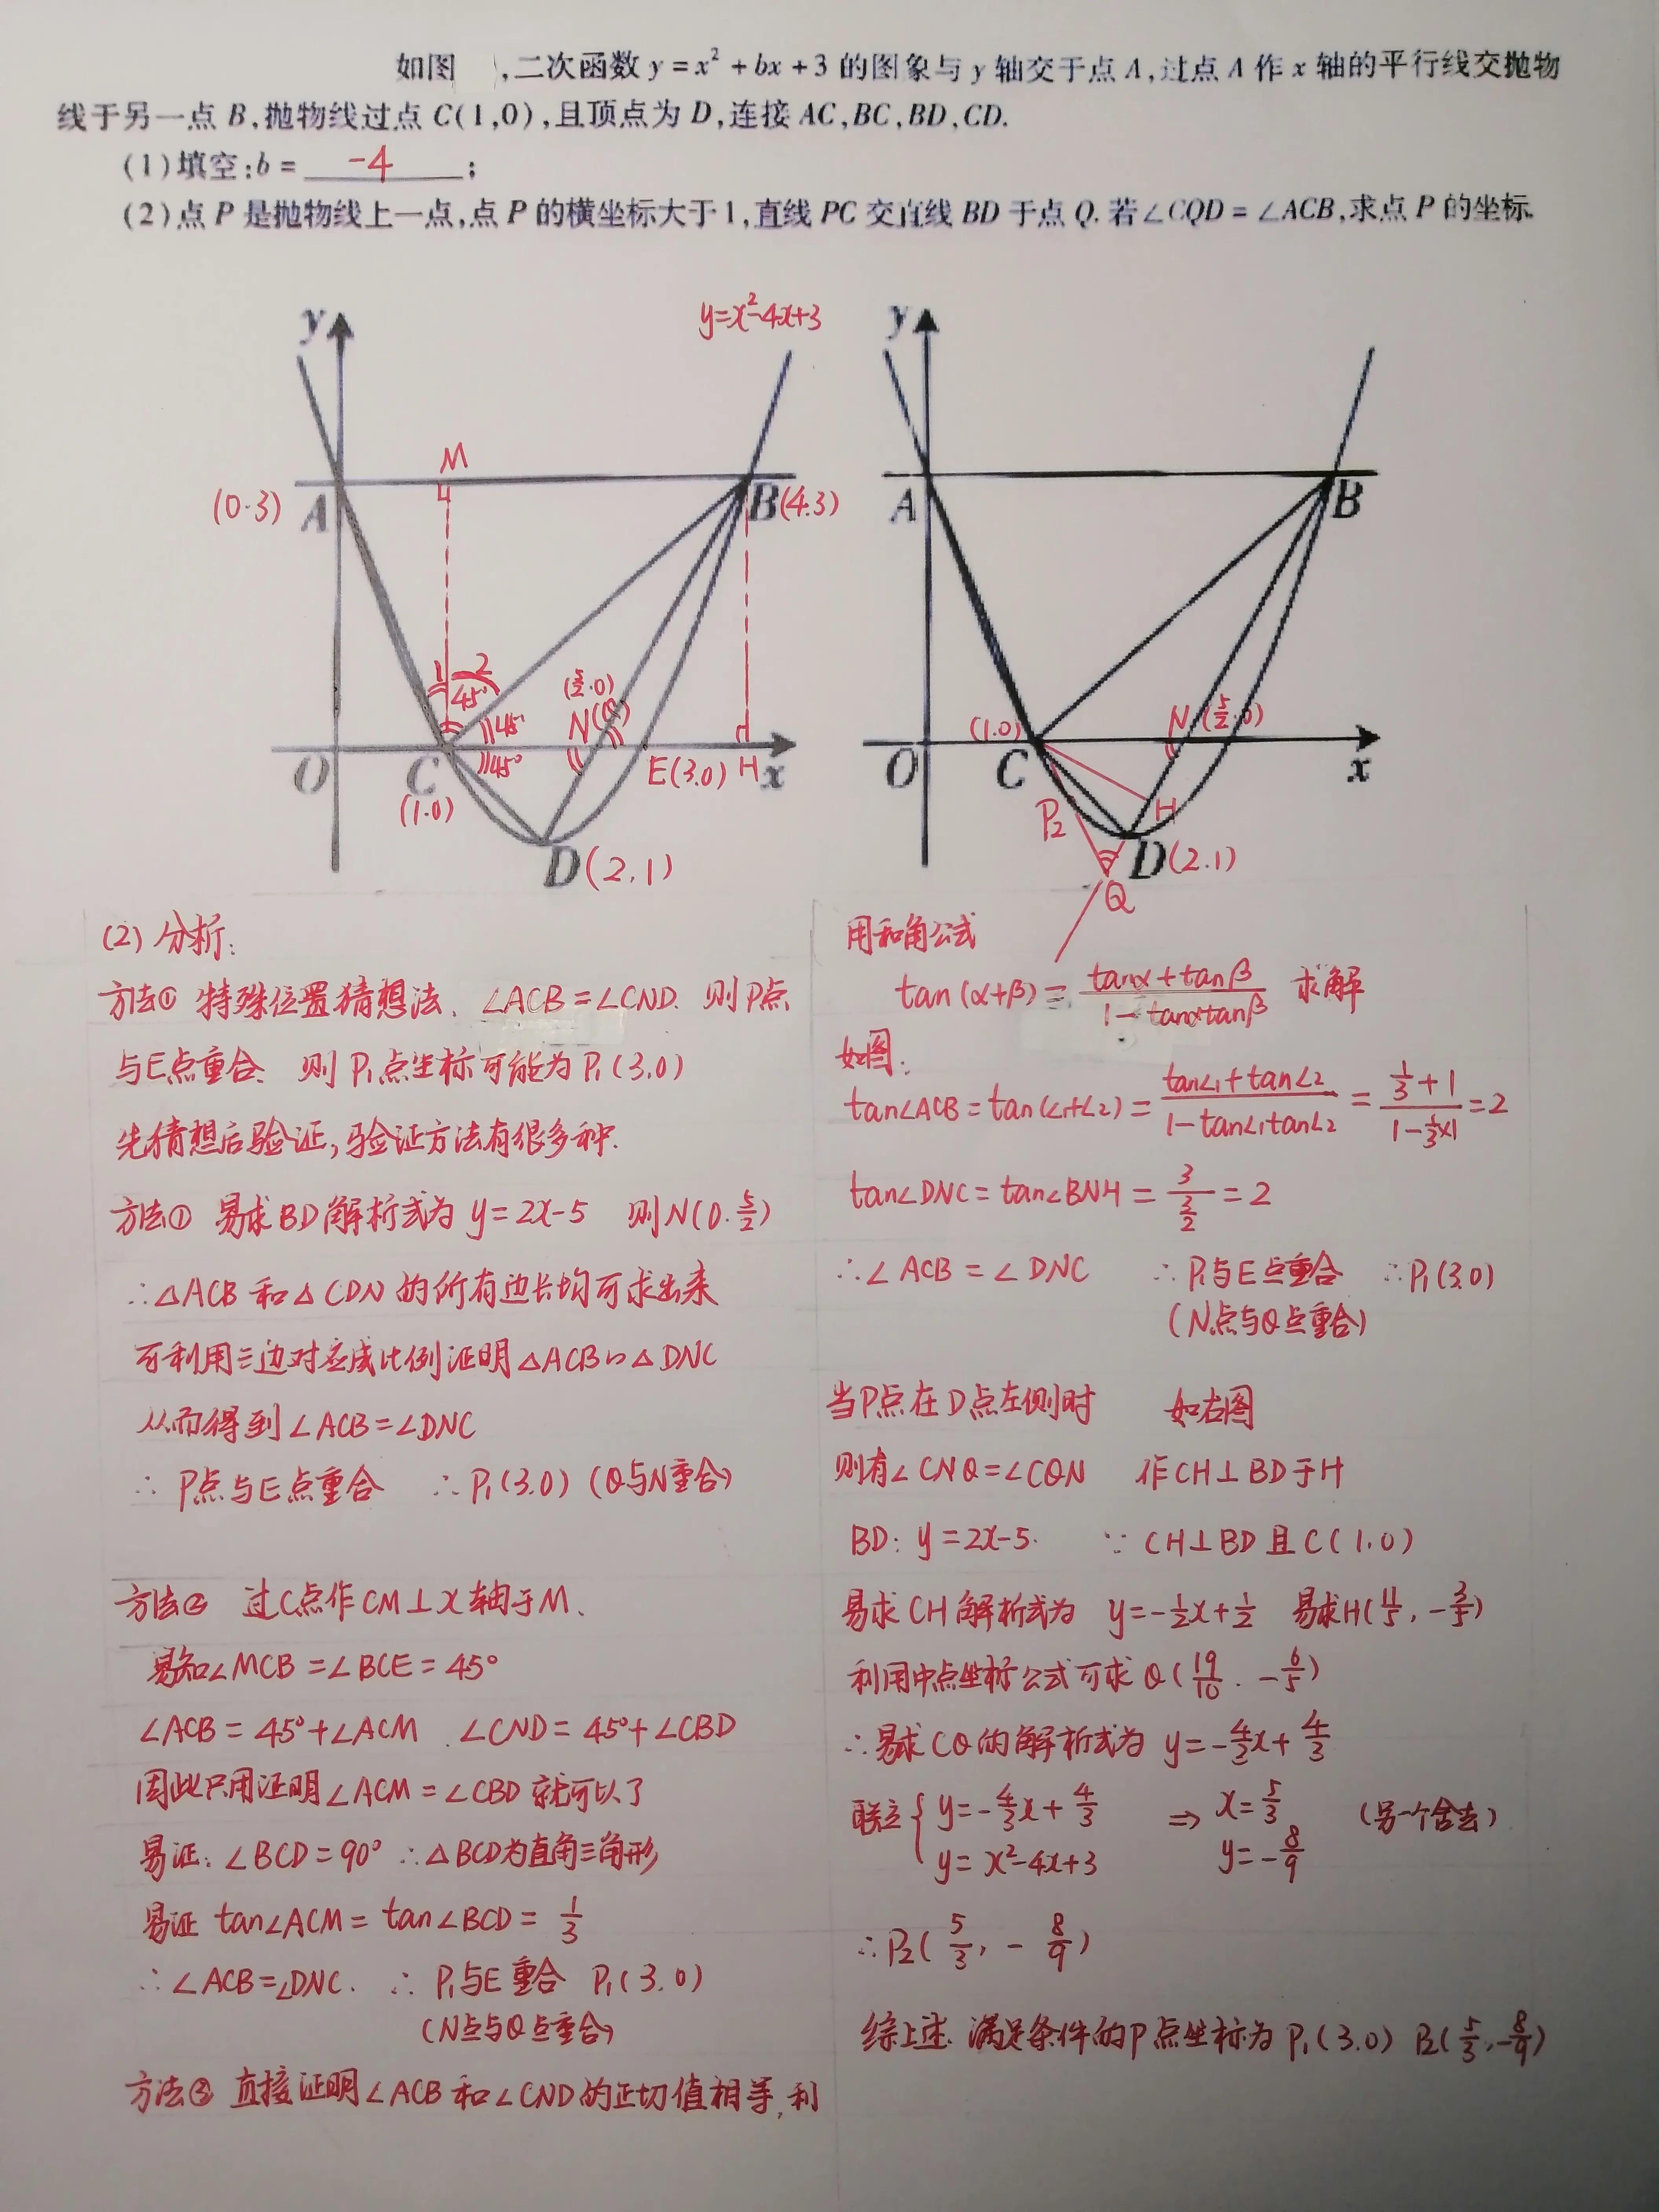 如图 ,二次函数 y=x²+bx+3 的图象与 y 轴交于点 A,过点 A 作 x 轴的平行线交抛物
线于另一点 B,抛物线过点 C(1,0),且顶点为 D,连接 AC,BC,BD,CD.
(1)填空:b= -4 ;
(2)点 P 是抛物线上一点,点 P 的横坐标大于1,直线 PC 交直线 BD 于点 Q.若∠CQD=∠ACB,求点 P 的坐标.
y
y=x²-4x+3
M
A
(0.3)
B(4.3)
1 2
45°
45°
45°
(5/2.0)
N(Q)
O
C
(1.0)
E(3.0)
H
x
D(2,1)
y
A
B
(1.0)
N(5/2.0)
O
C
x
P₂
H
D(2.1)
Q
(2) 分析:
方法① 特殊位置猜想法、∠ACB=∠CND. 则P点
与E点重合、则P₁点坐标可能为P₁(3.0)
先猜想后验证,验证方法有很多种.
方法① 易求BD解析式为 y=2x-5 则N(0.5/2)
∴△ACB和△CDN的所有边长均可求出来
可利用三边对应成比例证明△ACB∽△DNC
从而得到∠ACB=∠DNC
∴P点与E点重合 ∴P₁(3.0)(Q与N重合)
方法② 过C点作CM⊥X轴于M、
易知∠MCB=∠BCE=45°
∠ACB=45°+∠ACM .∠CND=45°+∠CBD
因此只用证明∠ACM=∠CBD就可以了
易证:∠BCD=90° ∴△BCD为直角三角形
易证 tan∠ACM=tan∠BCD=1/3
∴∠ACB=∠DNC. ∴P₁与E重合 P₁(3.0)
(N点与Q点重合)
方法③ 直接证明∠ACB和∠CND的正切值相等,利
用和角公式
tan(α+β)=(tanα+tanβ)/(1-tanαtanβ) 求解
如图:
tan∠ACB=tan(∠1+∠2)=(tan∠1+tan∠2)/(1-tan∠1tan∠2)=(1/3+1)/(1-1/3×1)=2
tan∠DNC=tan∠BNH=3/(3/2)=2
∴∠ACB=∠DNC ∴P₁与E点重合 ∴P₁(3.0)
(N点与Q点重合)
当P点在D点左侧时 如右图
则有∠CNQ=∠CQN 作CH⊥BD于H
BD:y=2x-5. ∵CH⊥BD且C(1.0)
易求CH解析式为 y=-1/2x+1/2 易求H(11/5,-3/5)
利用中点坐标公式可求Q(19/10.-6/5)
∴易求CQ的解析式为 y=-4/3x+4/3
联立{y=-4/3x+4/3 ⇒ x=5/3 (另一个舍去)
y=x²-4x+3 y=-8/9
∴P₂(5/3,-8/9)
综上述.满足条件的P点坐标为P₁(3.0) P₂(5/3,-8/9)